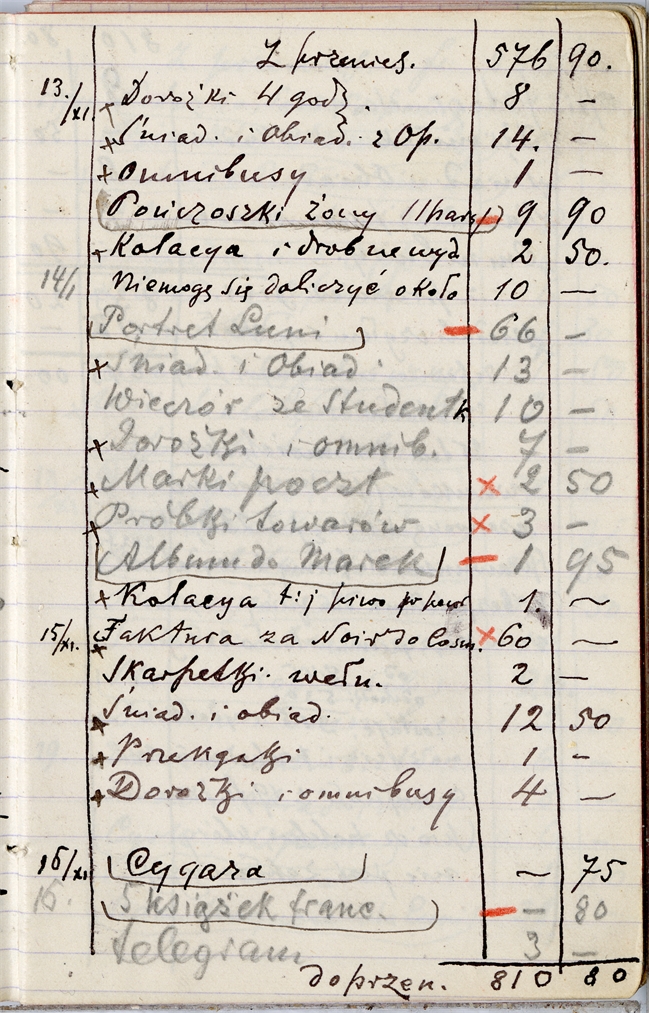 Z przenies. 576 90.
13./XI + Dorożki 4 godz. 8 —
+ Śniad. i Obiad. z Op. 14. —
+ Omnibusy 1 —
Pończoszki żony 9 90
+ Kolacya i drobne wyd 2 50.
14/1 Niemogę się doliczyć około 10 —
Portret Luni — 66 —
+ Śniad. i Obiad 13 —
Wieczór ze Studentk 10 —
+ Dorożki i omnib. 7 —
+ Marki poczt × 2 50
+ Próbki towarów × 3 —
Album do Marek — 1 95
+ Kolacya t:j piwo 1. —
15/XI. + Faktura za Noir do Cosm. × 60 —
Skarpetki wełn. 2 —
+ Śniad. i obiad. 12 50
+ Przekąski 1 —
+ Dorożki i omnibusy 4 —
16/XI Cygara — 75
16. 5 książek franc. — — 80
telegram 3 —
do przen. 810 80